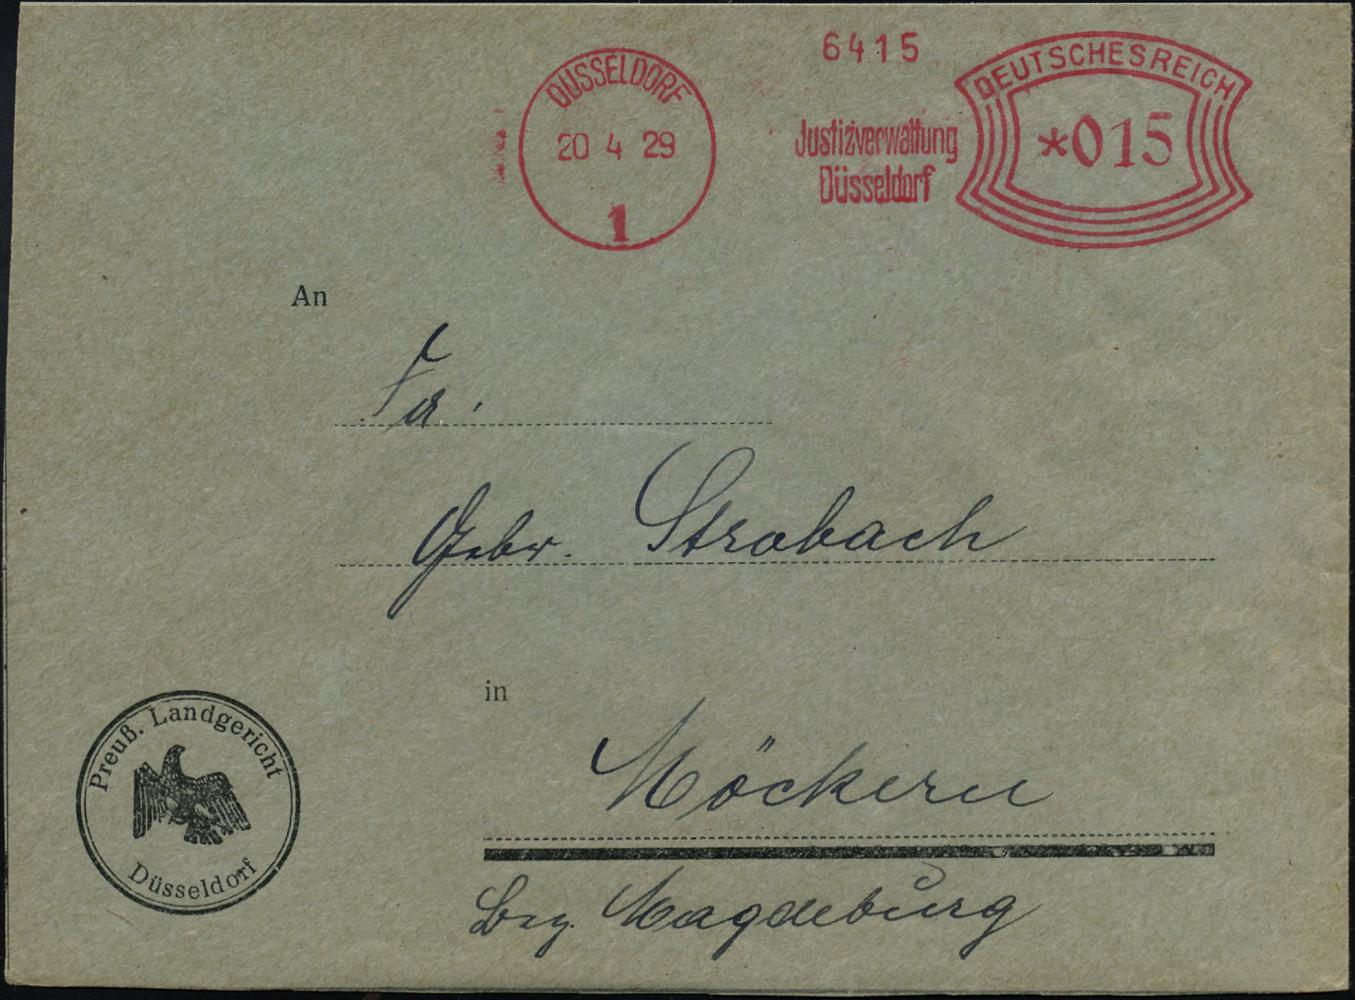 6415
DÜSSELDORF
20 4 29
1
Justizverwaltung
Düsseldorf
DEUTSCHES REICH
*015
An
Fa.
Gebr. Strobach
in
Möckern
Bez. Magdeburg
Preuß. Landgericht
Düsseldorf